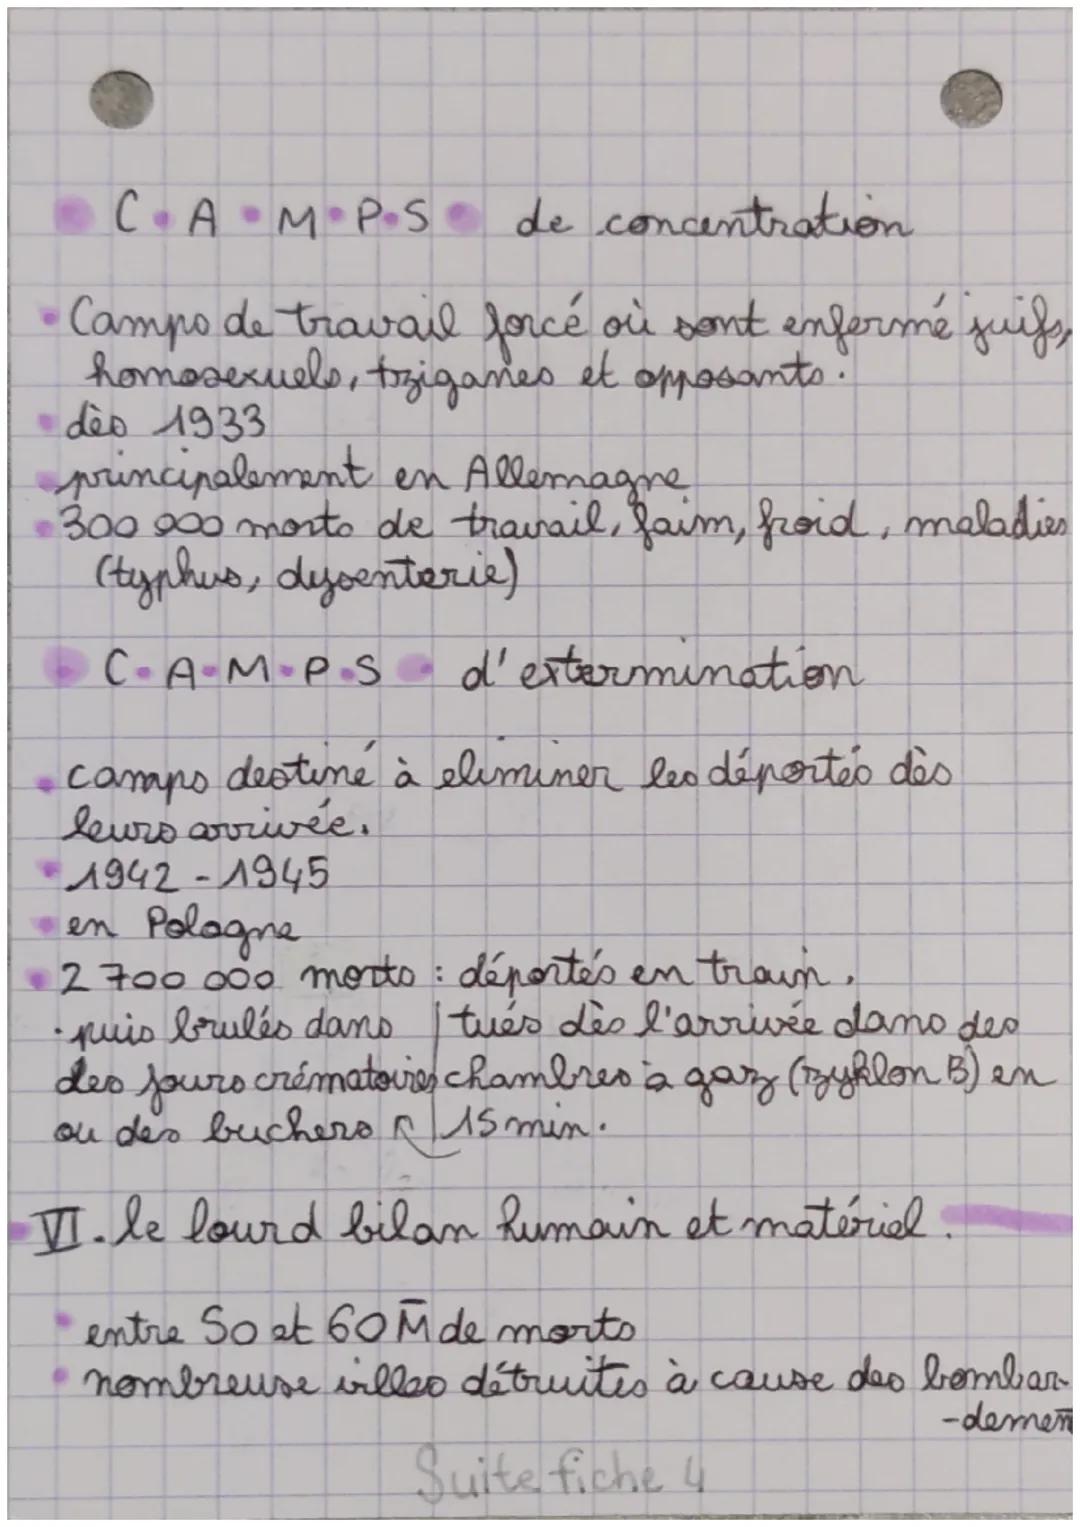 C.A.M.P.S de concentration
• Camps de travail forcé où sont enfermé juifs,
homosexuels, tziganes et opposants.
• dès 1933
• principalement en Allemagne
• 300 000 morts de travail, faim, froid, maladies
(typhus, dysenterie)
C.A.M.P.S d'extermination
• camps destiné à eliminer les déportés dès
leurs arrivée.
• 1942 - 1945
• en Pologne
• 2 700 000 morts : déportés en train.
• puis brulés dans | tués dès l'arrivée dans des
des fours crématoires | chambres à gaz (zyklon B) en
ou des buchers | 15 min.
VI. le lourd bilan humain et matériel.
• entre 50 et 60 M̄ de morts
• nombreuse villes détruites à cause des bombar-
-dement
Suite fiche 4